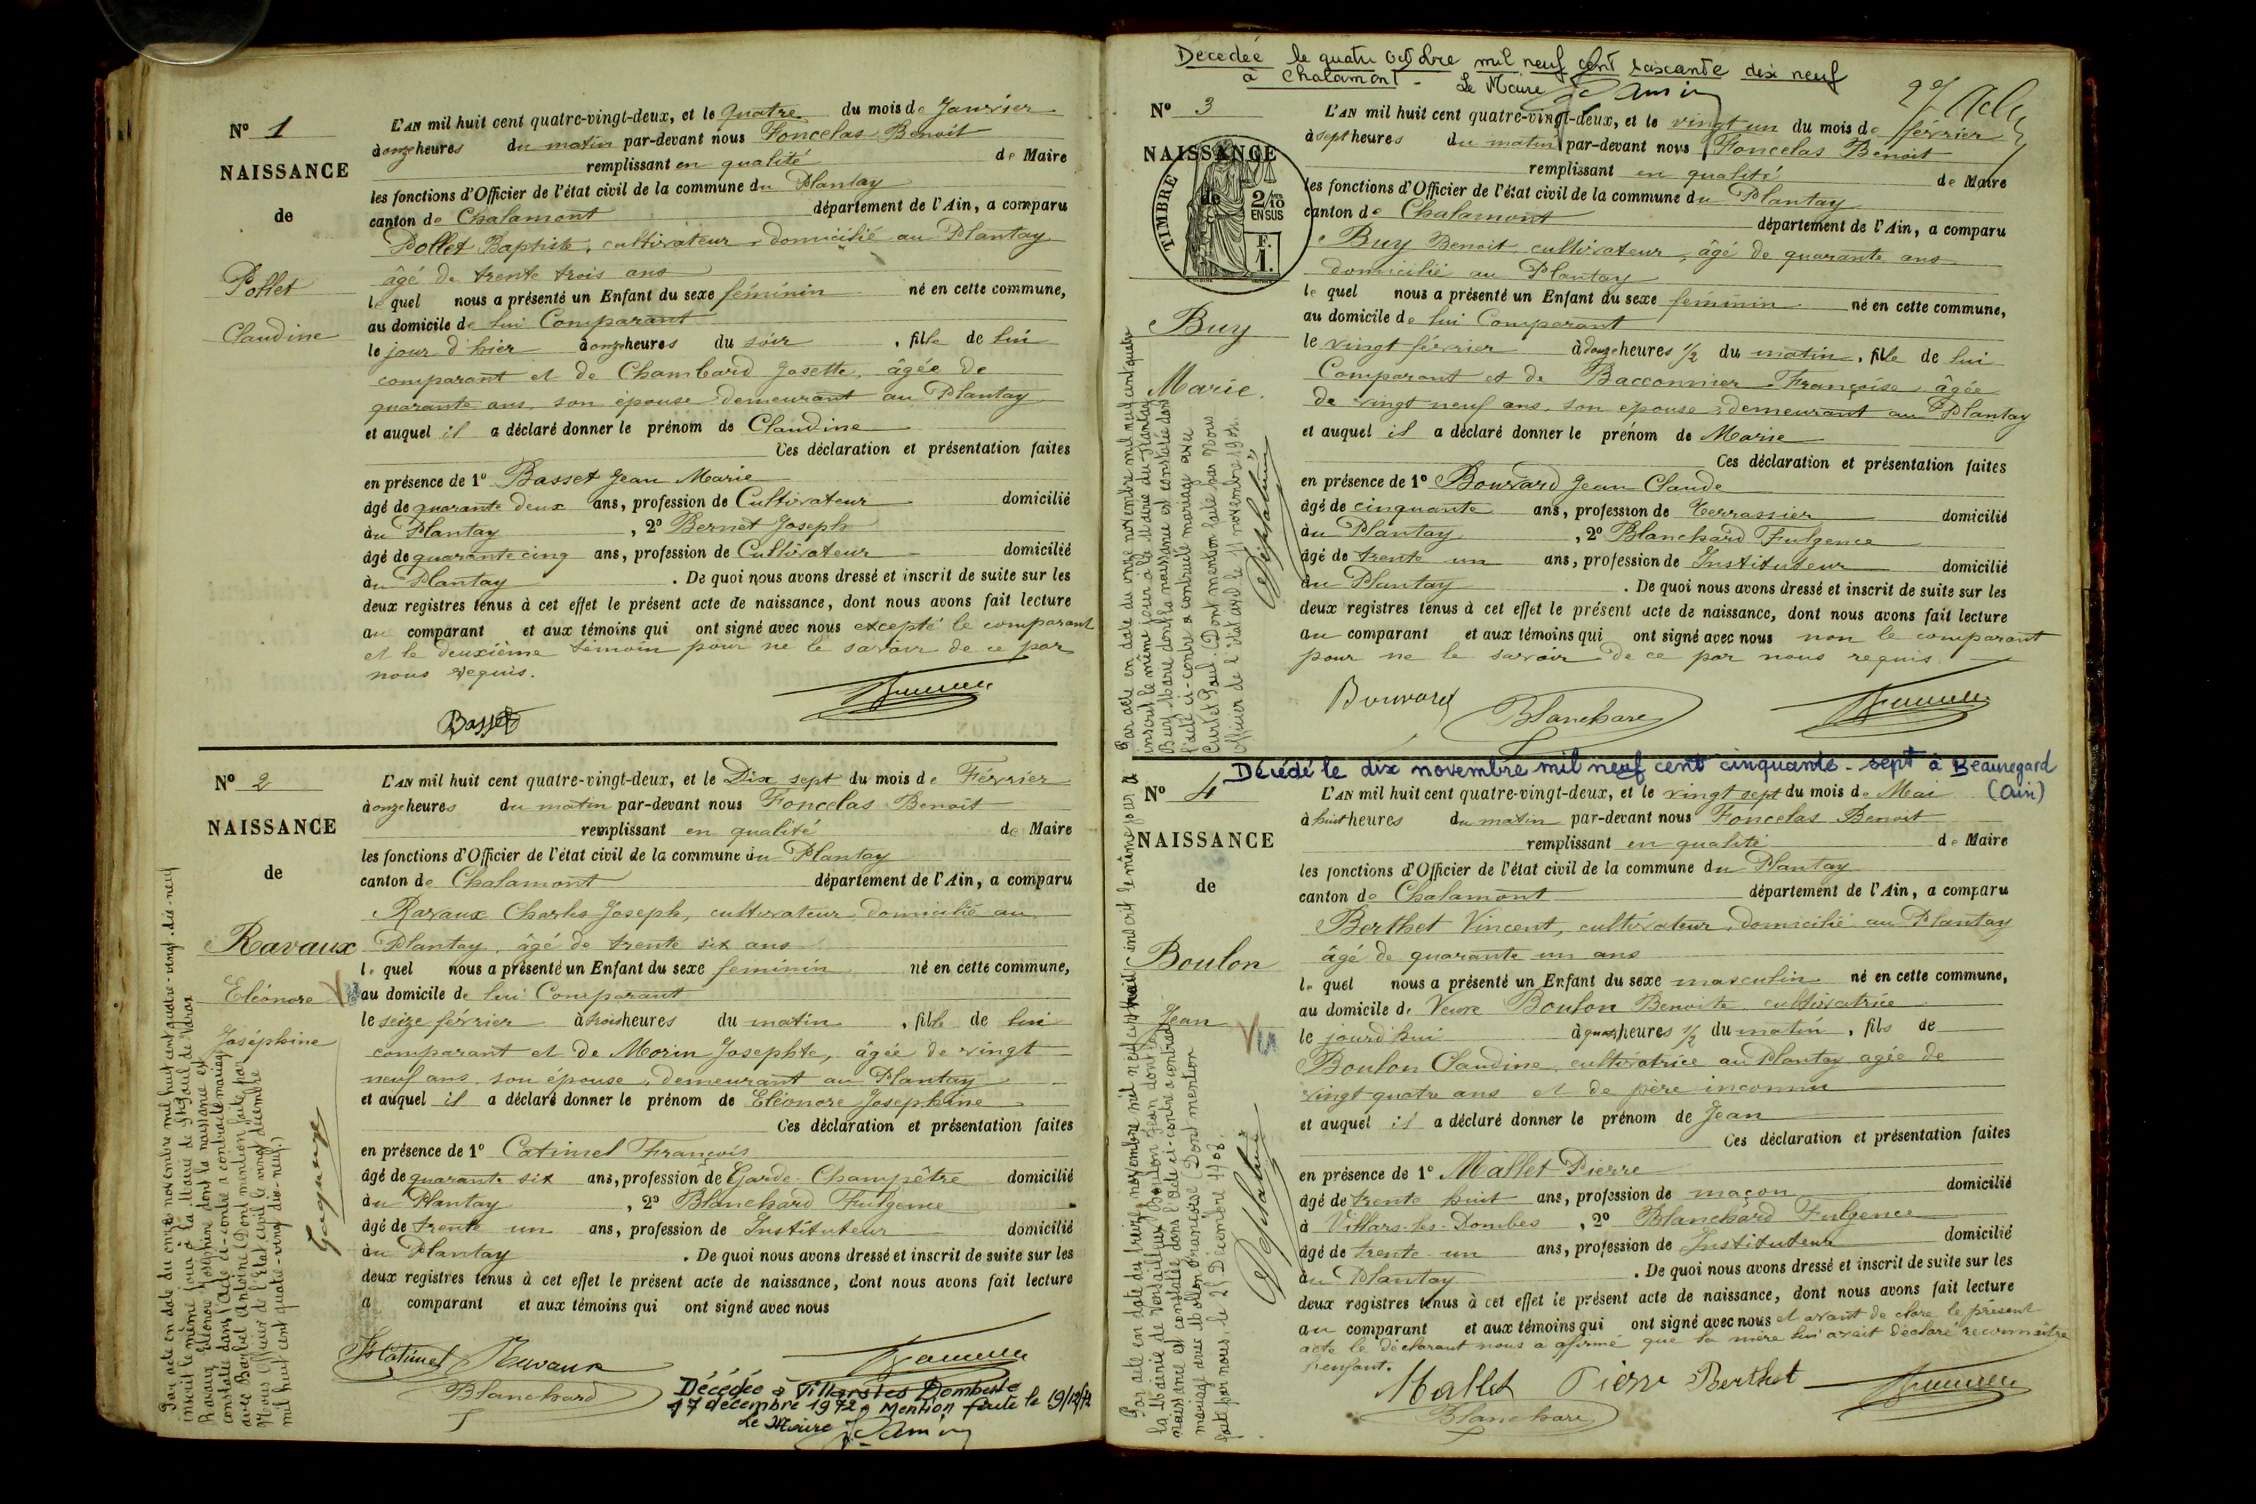 N° 1
NAISSANCE
de
Pollet
Claudine
L'AN mil huit cent quatre-vingt-deux, et le quatre du mois de Janvier
à onze heures du matin par-devant nous Foncelas Benoit
remplissant en qualité de Maire
les fonctions d'Officier de l'état civil de la commune du Plantay
canton de Chalamont département de l'Ain, a comparu
Pollet Baptiste, cultivateur, domicilié au Plantay
âgé de trente trois ans
le quel nous a présenté un Enfant du sexe féminin né en cette commune,
au domicile de lui Comparant
le jour d'hier à onze heures du soir, fille de lui
comparant et de Chambard Josette, âgée de
quarante ans, son épouse, demeurant au Plantay
et auquel il a déclaré donner le prénom de Claudine
Ces déclaration et présentation faites
en présence de 1° Basset Jean Marie
âgé de quarante deux ans, profession de Cultivateur domicilié
au Plantay, 2° Bernet Joseph
âgé de quarante cinq ans, profession de Cultivateur domicilié
au Plantay. De quoi nous avons dressé et inscrit de suite sur les
deux registres tenus à cet effet le présent acte de naissance, dont nous avons fait lecture
au comparant et aux témoins qui ont signé avec nous excepté le comparant
et le deuxième témoin pour ne le savoir de ce par
nous requis.
Basset
N° 2
NAISSANCE
de
Ravaux
Eléonore
Joséphine
L'AN mil huit cent quatre-vingt-deux, et le Dix sept du mois de Février
à onze heures du matin par-devant nous Foncelas Benoit
remplissant en qualité de Maire
les fonctions d'Officier de l'état civil de la commune du Plantay
canton de Chalamont département de l'Ain, a comparu
Ravaux Charles Joseph, cultivateur, domicilié au
Plantay, âgé de trente six ans
le quel nous a présenté un Enfant du sexe féminin né en cette commune,
au domicile de lui Comparant
le seize février à trois heures du matin, fille de lui
comparant et de Morin Josephte, âgée de vingt
neuf ans, son épouse, demeurant au Plantay
et auquel il a déclaré donner le prénom de Eléonore Josephine
Ces déclaration et présentation faites
en présence de 1° Catimel François
âgé de quarante six ans, profession de Garde Champêtre domicilié
au Plantay, 2° Blanchard Fulgence
âgé de trente un ans, profession de Instituteur domicilié
au Plantay. De quoi nous avons dressé et inscrit de suite sur les
deux registres tenus à cet effet le présent acte de naissance, dont nous avons fait lecture
a comparant et aux témoins qui ont signé avec nous
Catimel Ravaux
Blanchard
Décédée à Villars les Dombes le
17 décembre 1972. Mention faite le 19/12/72
Le Maire
Par acte en date du onze novembre mil huit cent quatre-vingt-dix-neuf
inscrit le même jour à la Mairie de St Paul de Varax
Ravaux Eléonore Joséphine dont la naissance est
constatée dans l'acte ci-contre a contracté mariage
avec Antoine (Dont mention faite par
Nous Officier de l'Etat civil le vingt décembre
mil huit cent quatre-vingt dix-neuf.)
Décédée le quatre octobre mil neuf cent soixante dix neuf
à Chalamont - Le Maire
N° 3
NAISSANCE
de
TIMBRE
2/10
EN SUS
F.
1.
Buy
Marie
L'AN mil huit cent quatre-vingt-deux, et le vingt un du mois de février
à sept heures du matin par-devant nous Foncelas Benoit
remplissant en qualité de Maire
les fonctions d'Officier de l'état civil de la commune du Plantay
canton de Chalamont département de l'Ain, a comparu
Buy Benoit, cultivateur, âgé de quarante ans
domicilié au Plantay
le quel nous a présenté un Enfant du sexe féminin né en cette commune,
au domicile de lui Comparant
le vingt février à onze heures 1/2 du matin, fille de lui
Comparant et de Bacconnier Françoise, âgée
de vingt neuf ans, son épouse, demeurant au Plantay
et auquel il a déclaré donner le prénom de Marie
Ces déclaration et présentation faites
en présence de 1° Bouvard Jean Claude
âgé de cinquante ans, profession de Terrassier domicilié
au Plantay, 2° Blanchard Fulgence
âgé de trente un ans, profession de Instituteur domicilié
au Plantay. De quoi nous avons dressé et inscrit de suite sur les
deux registres tenus à cet effet le présent acte de naissance, dont nous avons fait lecture
au comparant et aux témoins qui ont signé avec nous non le comparant
pour ne le savoir de ce par nous requis
Bouvard Blanchard
Par acte en date du onze novembre mil neuf cent quatre
inscrit le même jour à la Mairie du Plantay
Buy Marie dont la naissance est constatée dans
l'acte ci-contre a contracté mariage avec
Curlet Paul. (Dont mention faite par Nous
Officier de l'état civil le 11 novembre 1904.
Décédé le dix novembre mil neuf cent cinquante-sept à Beauregard
(Ain)
N° 4
NAISSANCE
de
Boulon
Jean
Vu
L'AN mil huit cent quatre-vingt-deux, et le vingt sept du mois de Mai
à huit heures du matin par-devant nous Foncelas Benoit
remplissant en qualité de Maire
les fonctions d'Officier de l'état civil de la commune du Plantay
canton de Chalamont département de l'Ain, a comparu
Berthet Vincent, cultivateur, domicilié au Plantay
âgé de quarante un ans
le quel nous a présenté un Enfant du sexe masculin né en cette commune,
au domicile de Veuve Boulon Benoite cultivatrice
le jourd'hui à quatre heures 1/2 du matin, fils de
Boulon Claudine, cultivatrice au Plantay agée de
vingt quatre ans et de père inconnu
et auquel il a déclaré donner le prénom de Jean
Ces déclaration et présentation faites
en présence de 1° Mallet Pierre
âgé de trente huit ans, profession de maçon domicilié
à Villars-les-Dombes, 2° Blanchard Fulgence
âgé de trente un ans, profession de Instituteur domicilié
au Plantay. De quoi nous avons dressé et inscrit de suite sur les
deux registres tenus à cet effet le présent acte de naissance, dont nous avons fait lecture
au comparant et aux témoins qui ont signé avec nous et avant de clore le présent
acte le déclarant nous a affirmé que la mère lui avait déclaré reconnaître
l'enfant.
Mallet Pierre Berthet
Blanchard
Par acte en date du treize novembre mil neuf cent huit inscrit le même jour à
la Mairie de Versailleux Boulon Jean dont la
naissance est constatée dans l'acte ci-contre a contracté
mariage avec Françoise (Dont mention
faite par nous, le 21 Décembre 1908.